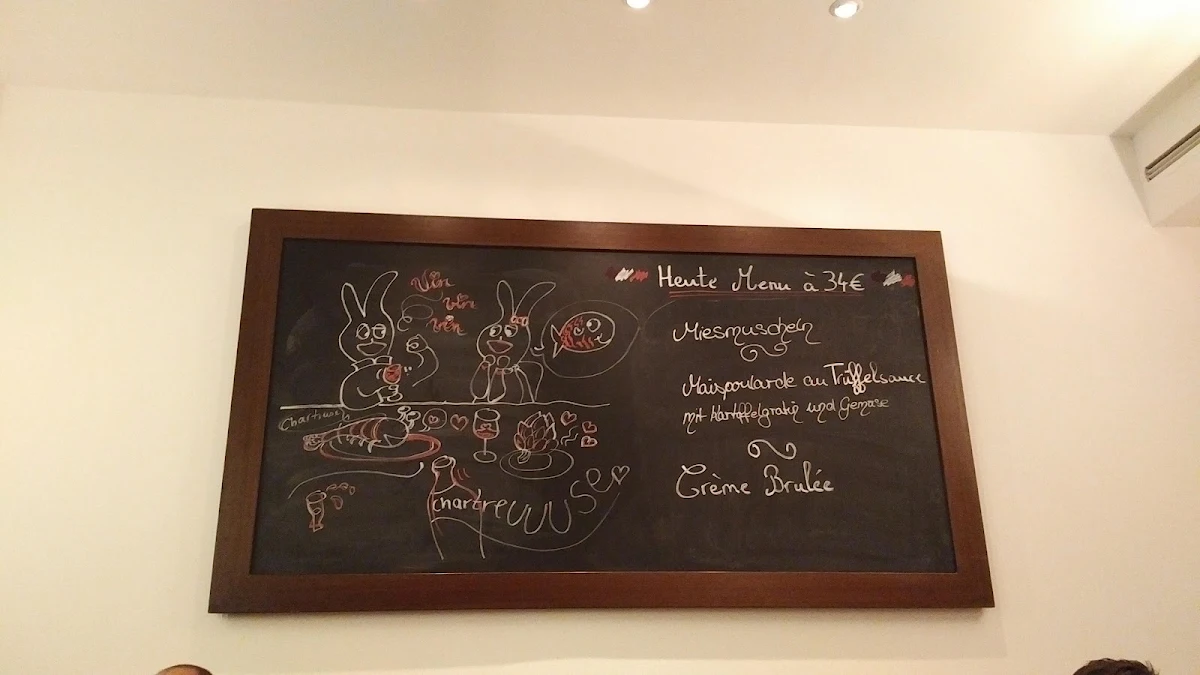 Vin
vin
vin
Chartreuuuse
Heute Menu à 34€
Miesmuscheln
Maispoularde au Trüffelsauce
mit Kartoffelgratin und Gemüse
Crème Brulée